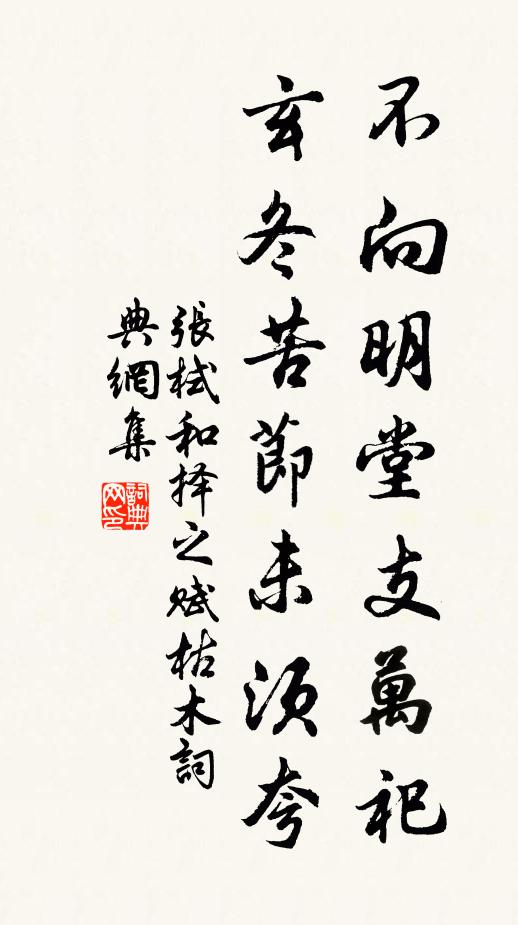 不向明堂支萬祀
玄冬苦節未須夸
張栻和择之赋枯木詞
典網集
詞典网印